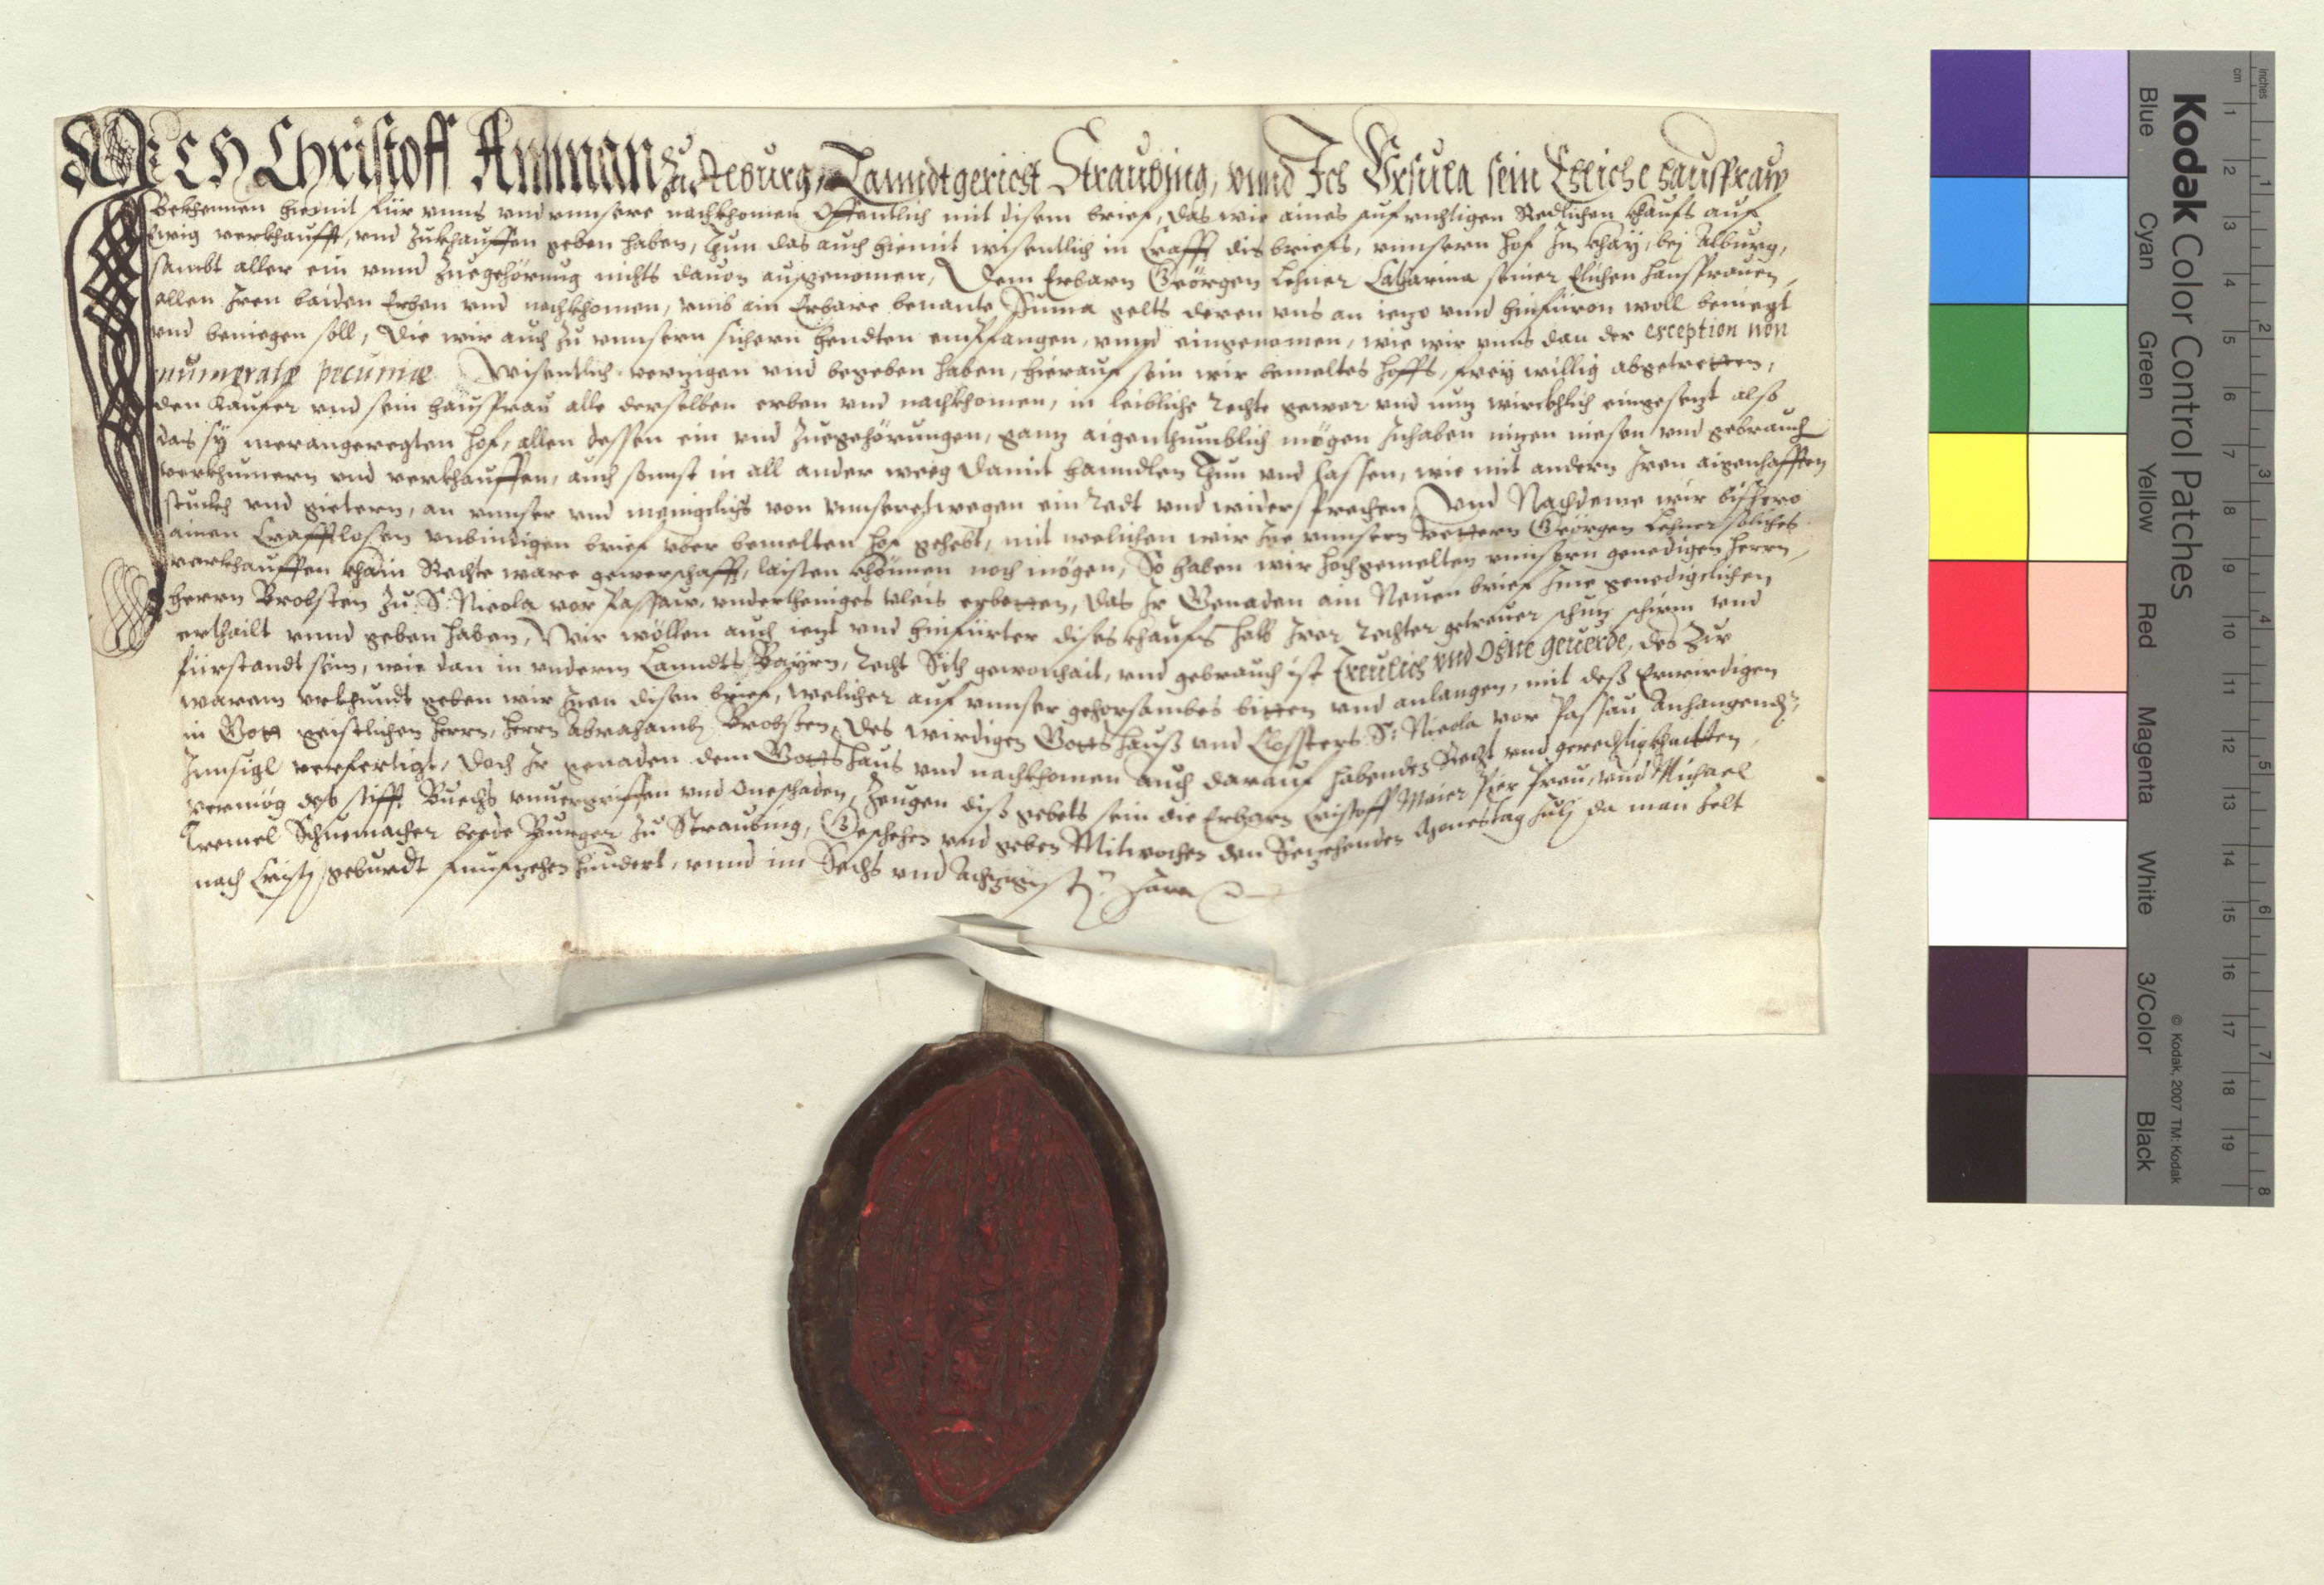 Ich Christoff Amman zu Alburg, Lanndtgericht Straubing, vnnd Ich Vrsula sein Eheliche hausfraw
Bekhennen hiemit für vnns vnd vnnsere nachkhomen Offentlich mit disem brief, das wir aines aufrichtigen Redlichen khaufs auf
Ewig verkhaufft, vnd Zukhauffen geben haben, Thun das auch hiemit wisentlich in Crafft dis briefs, vnnsern hof Im khay, bej Alburg,
sambt aller ein vnnd Zuegehörung nichts dauon ausgenomen, Dem Erbarn Geörgen Lehner Catharina seiner Elichen hausfrauen,
allen Iren baiden Erben vnd nachkhomen, vmb ain Erbare benante Suma gelts deren vns an iezo vnnd hinfüron woll beniegt
vnd beniegen soll, Die wir auch zu vnnsern sichern hendten empfangen, vnnd eingenomen, wie wir vnns dan der exception non
numeratæ pecuniæ Wisentlich verzigen vnd begeben haben, hierauf sein wir bemeltes hoffs, frey willig abgetretten,
den Kaufer vnd sein hausfrau alle derselben erben vnd nachkhomen, in leibliche recht gewer vnd nuz würckhlich eingesezt also
das sy merangeregten hof, allen dessen ein vnd Zuegehörungen, ganz aigenthumblich mögen Inhaben nuzen niesen vnd gebrauch
verkhumern vnd verkhauffen, auch sonnst in all ander weeg damit hanndlen Thun vnd lassen, wie mit andern Iren aigenhafften
stuckh vnd gietern, an vnnser vnd menigclichs von vnnsertwegen ein redt vnd widersprechen, Vnd Nachdeme wir bisshero
ainen Crafftlosen vnbindigen brief vber bemelten hof gehebt, mit welichen wir Ime vnnsern vettern Geörgen Lehner soliches
verkhauffen khain Rechte ware gewerschafft, laisten khönnen noch mögen, So haben wir hochgemelten vnnsern genedigen herrn,
herrn Brobsten zu S: Nicola vor Passaw, vndertheniges vleis erbetten, das Ir Genaden ain Neuen brief Ime genedigclichen
erthailt vnnd geben haben, Wir wöllen auch iezt vnd hinfürter dises khaufs halb Irer rechter getreuer schuz schirm vnd
fürstandt sein, wie dan in vnderm Lanndts Bayrn, recht Sith gewonhait, vnd gebrauch ist Treulich vnd Ohne geuerde, des Zur
warem vrkhundt geben wir Inen disen brief, welicher auf vnnser gehorsambes bitten vnd anlangen, mit deß Erwirdigen
in Gott geistlichen herrn, herrn Abrahamb Brobsten, des wirdigen Gottshauß vnd Clossters S: Nicola vor Passau Anhangendem
Innsigl verfertigt, Doch Ir genaden dem Gottshaus vnd nachkhomen auch darauf habenden Recht vnd gerechtigkhaitten,
vermög des stifft Buechs vnuergriffen vnd Oneschaden, Zeugen diß gebets sein die Erbarn Cristoff Maier Pier Preu, vnd Michael
Tremel Schuemacher beede Burger zu Straubing, Geschehen vnd geben Mitwochen den Sechzehenden Monestag Julj da man zelt
nach Cristj geburdt funfzehenhundert, vnnd im Sechs vnd Achzigisten Jare
Kodak Color Control Patches
Blue Cyan Green Yellow Red Magenta White 3/Color Black
© Kodak, 2007 TM: Kodak
cm 1 2 3 4 5 6 7 8 9 10 11 12 13 14 15 16 17 18 19
inches 1 2 3 4 5 6 7 8